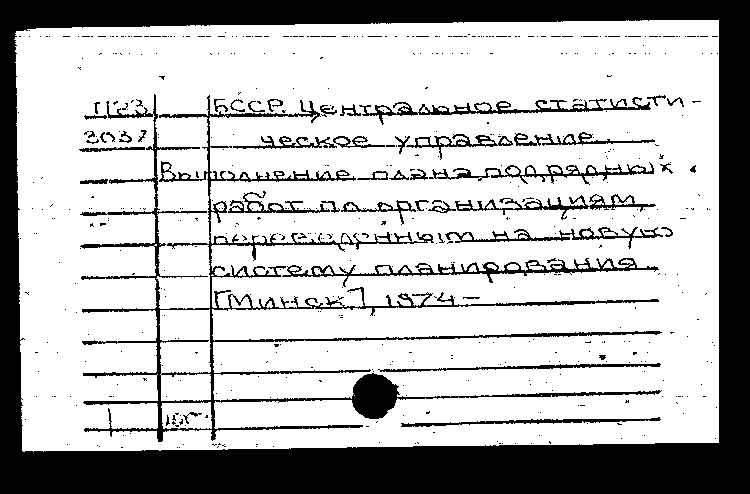 П23 БССР. Центральное статисти-
3037 ческое управление.
Выполнение плана подрядных
работ по организациям,
переведенным на новую
систему планирования.
[Минск], 1974 –